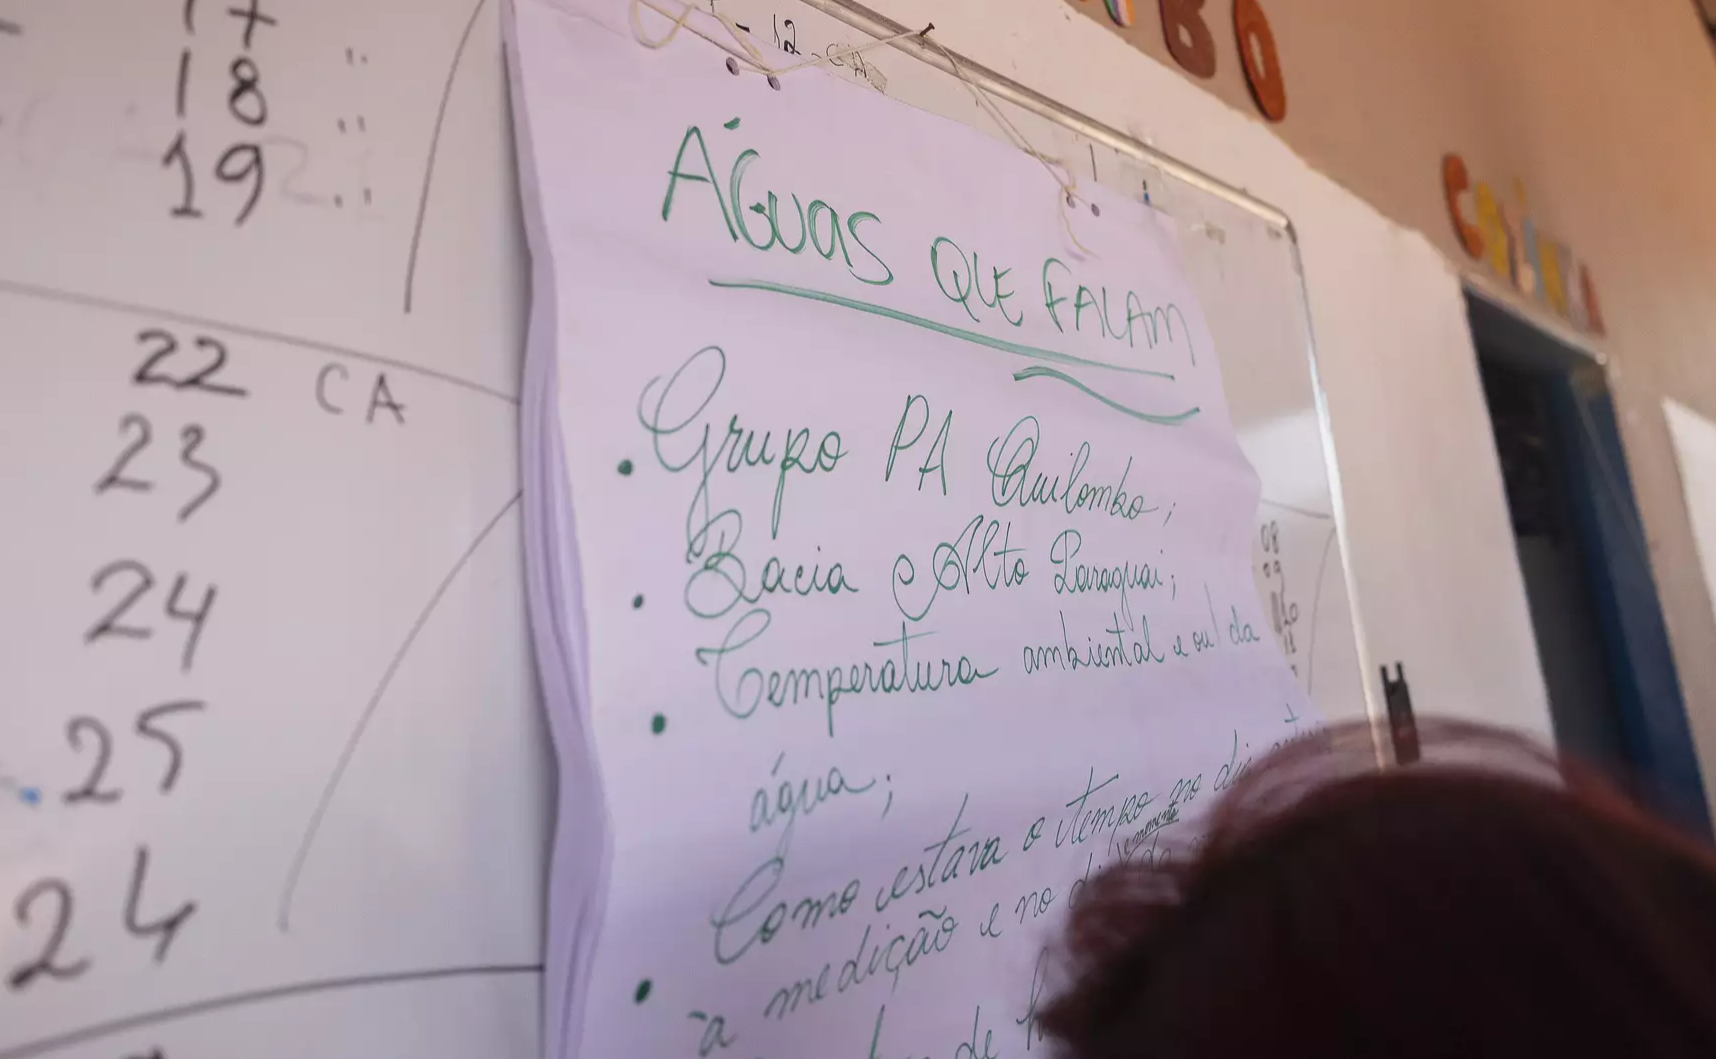 17
18 "
19 "
22 CA
23
24
25
24
- 12 - CA
ÁGUAS QUE FALAM
• Grupo PA Quilombo;
• Bacia e Alto Paraguai;
• Temperatura ambiental e ou da
água;
• Como estava o tempo no dia
momento
à medição e no
de
08
09
10
CO